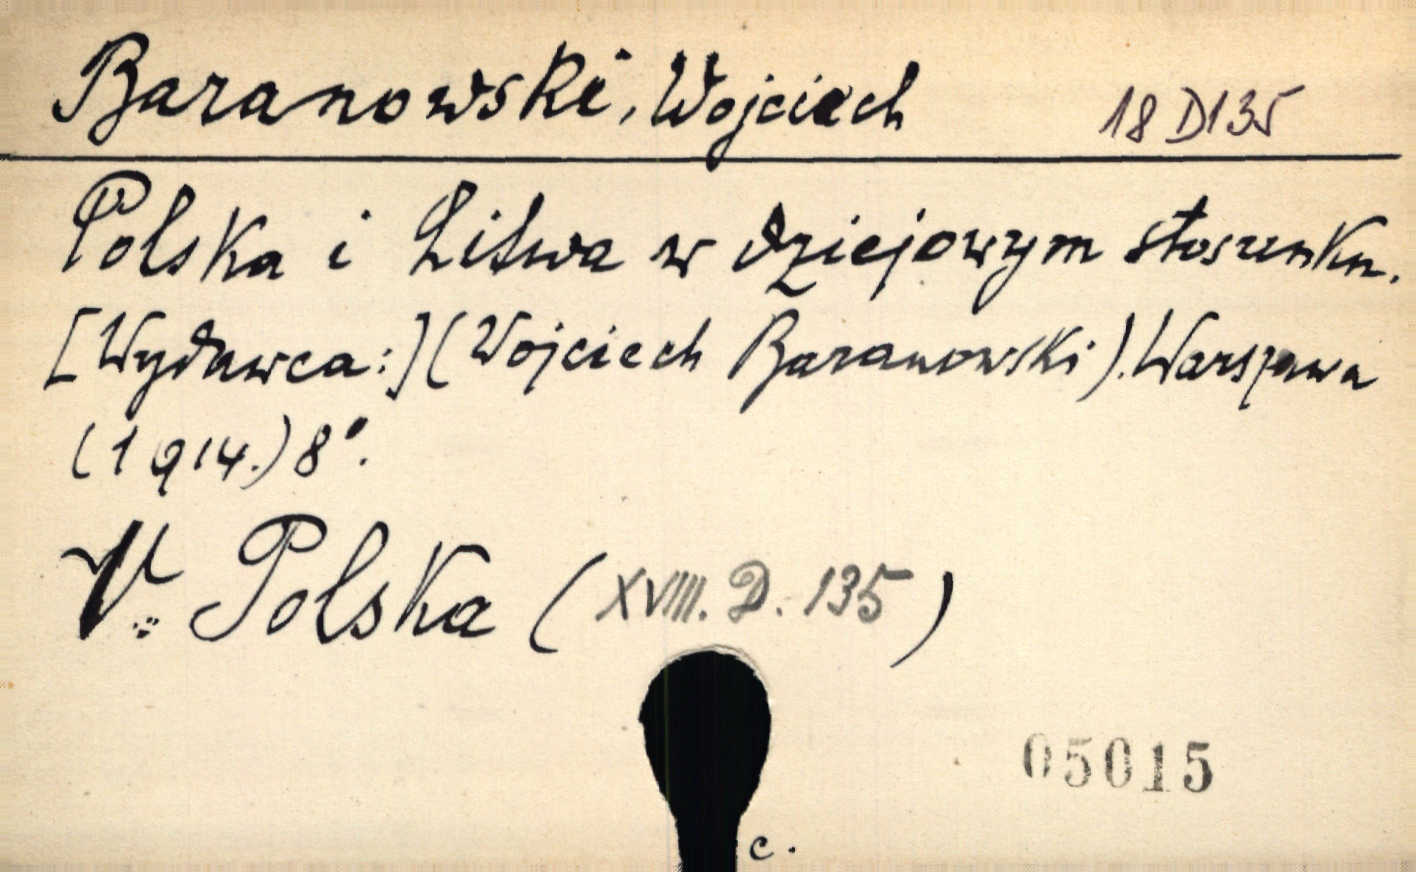 Baranowski, Wojciech 18 D135
Polska i Litwa w dziejowym stosunku.
[Wydawca:] (Wojciech Baranowski). Warszawa
(1914.) 8°.
V.: Polska (XVIII. D. 135)
05015
c.